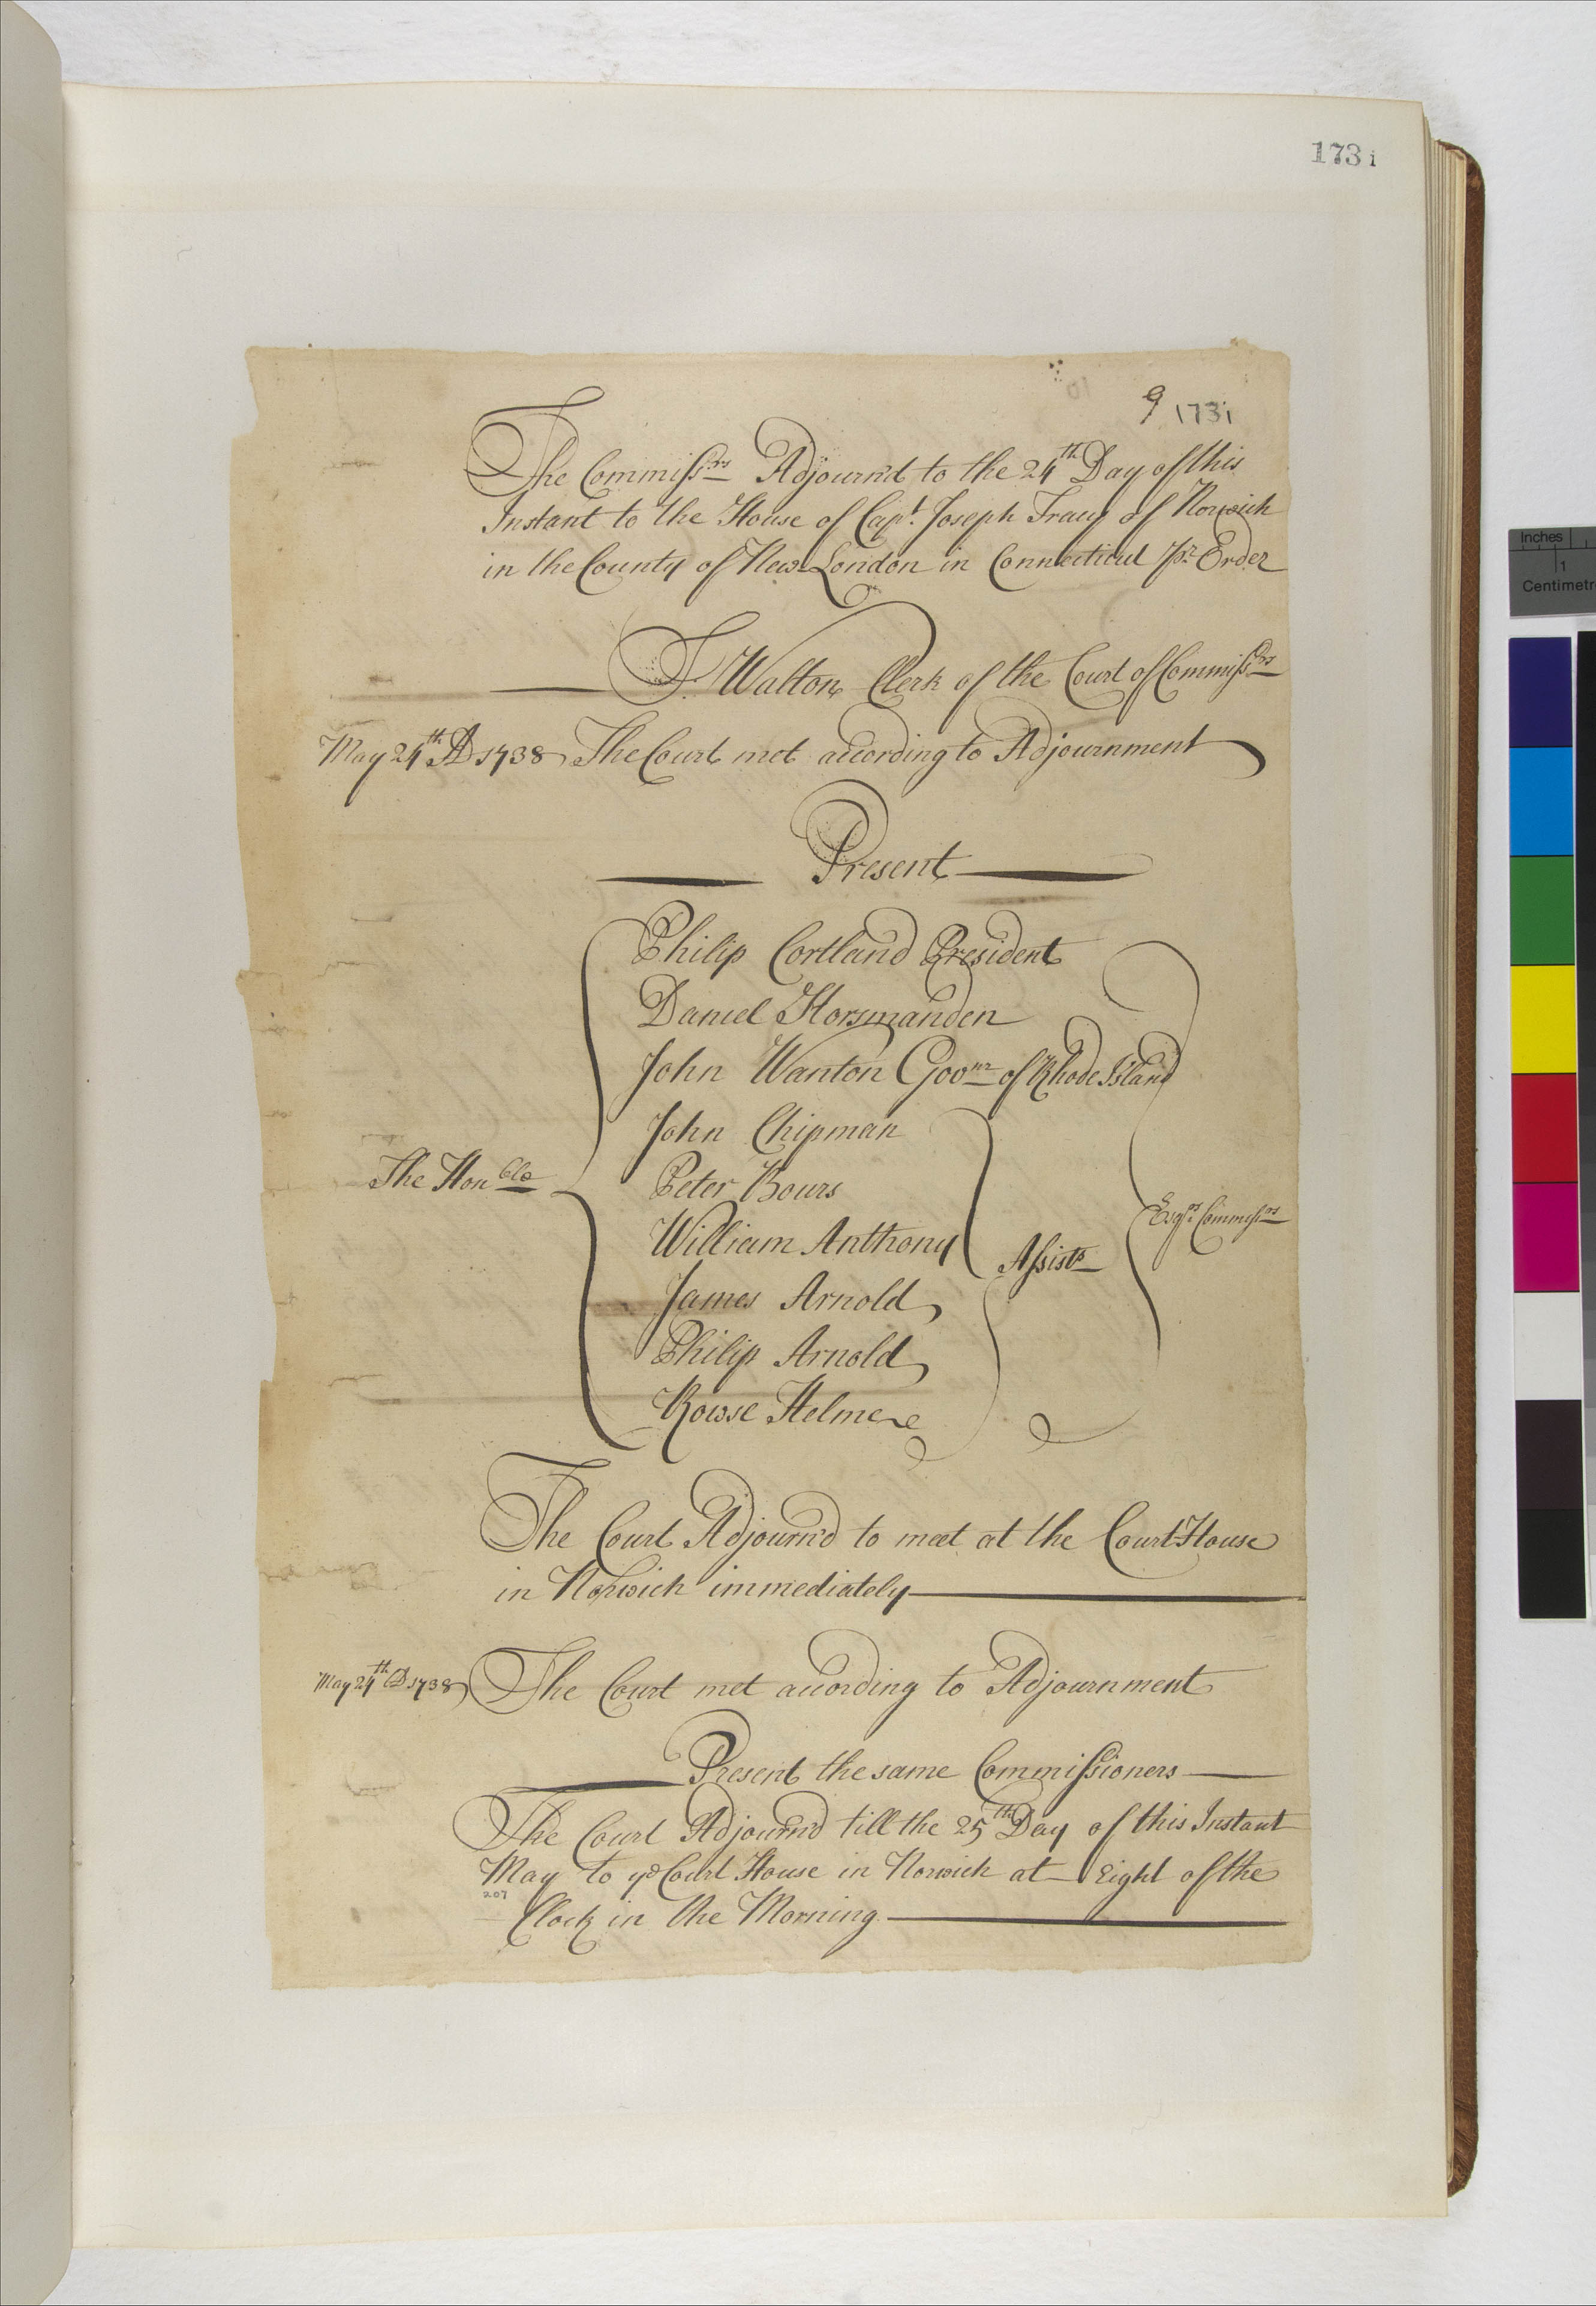 1731
9 1731
The Commissrs Adjourn'd to the 24th Day of this
Instant to the House of Capt. Joseph Tracy of Norwich
in the County of New London in Connecticut Pr. Order
T. Walton Clerk of the Court of Commissrs
May 24th AD 1738 The Court met according to Adjournment
Present
Philip Cortland President
Daniel Horsmanden
John Wanton Govnr of Rhode Island
John Chipman
The Honble
Peter Bours
Esqrs Commissrs
William Anthony
Assists
James Arnold
Philip Arnold
Rowse Helme
The Court Adjourn'd to meet at the Court House
in Norwich immediately
May 24th AD 1738 The Court met according to Adjournment
Present the same Commissioners
The Court Adjourn'd till the 25th Day of this Instant
May to ye Court House in Norwich at Eight of the
207
Clock in the Morning
Inches
1
Centimetr